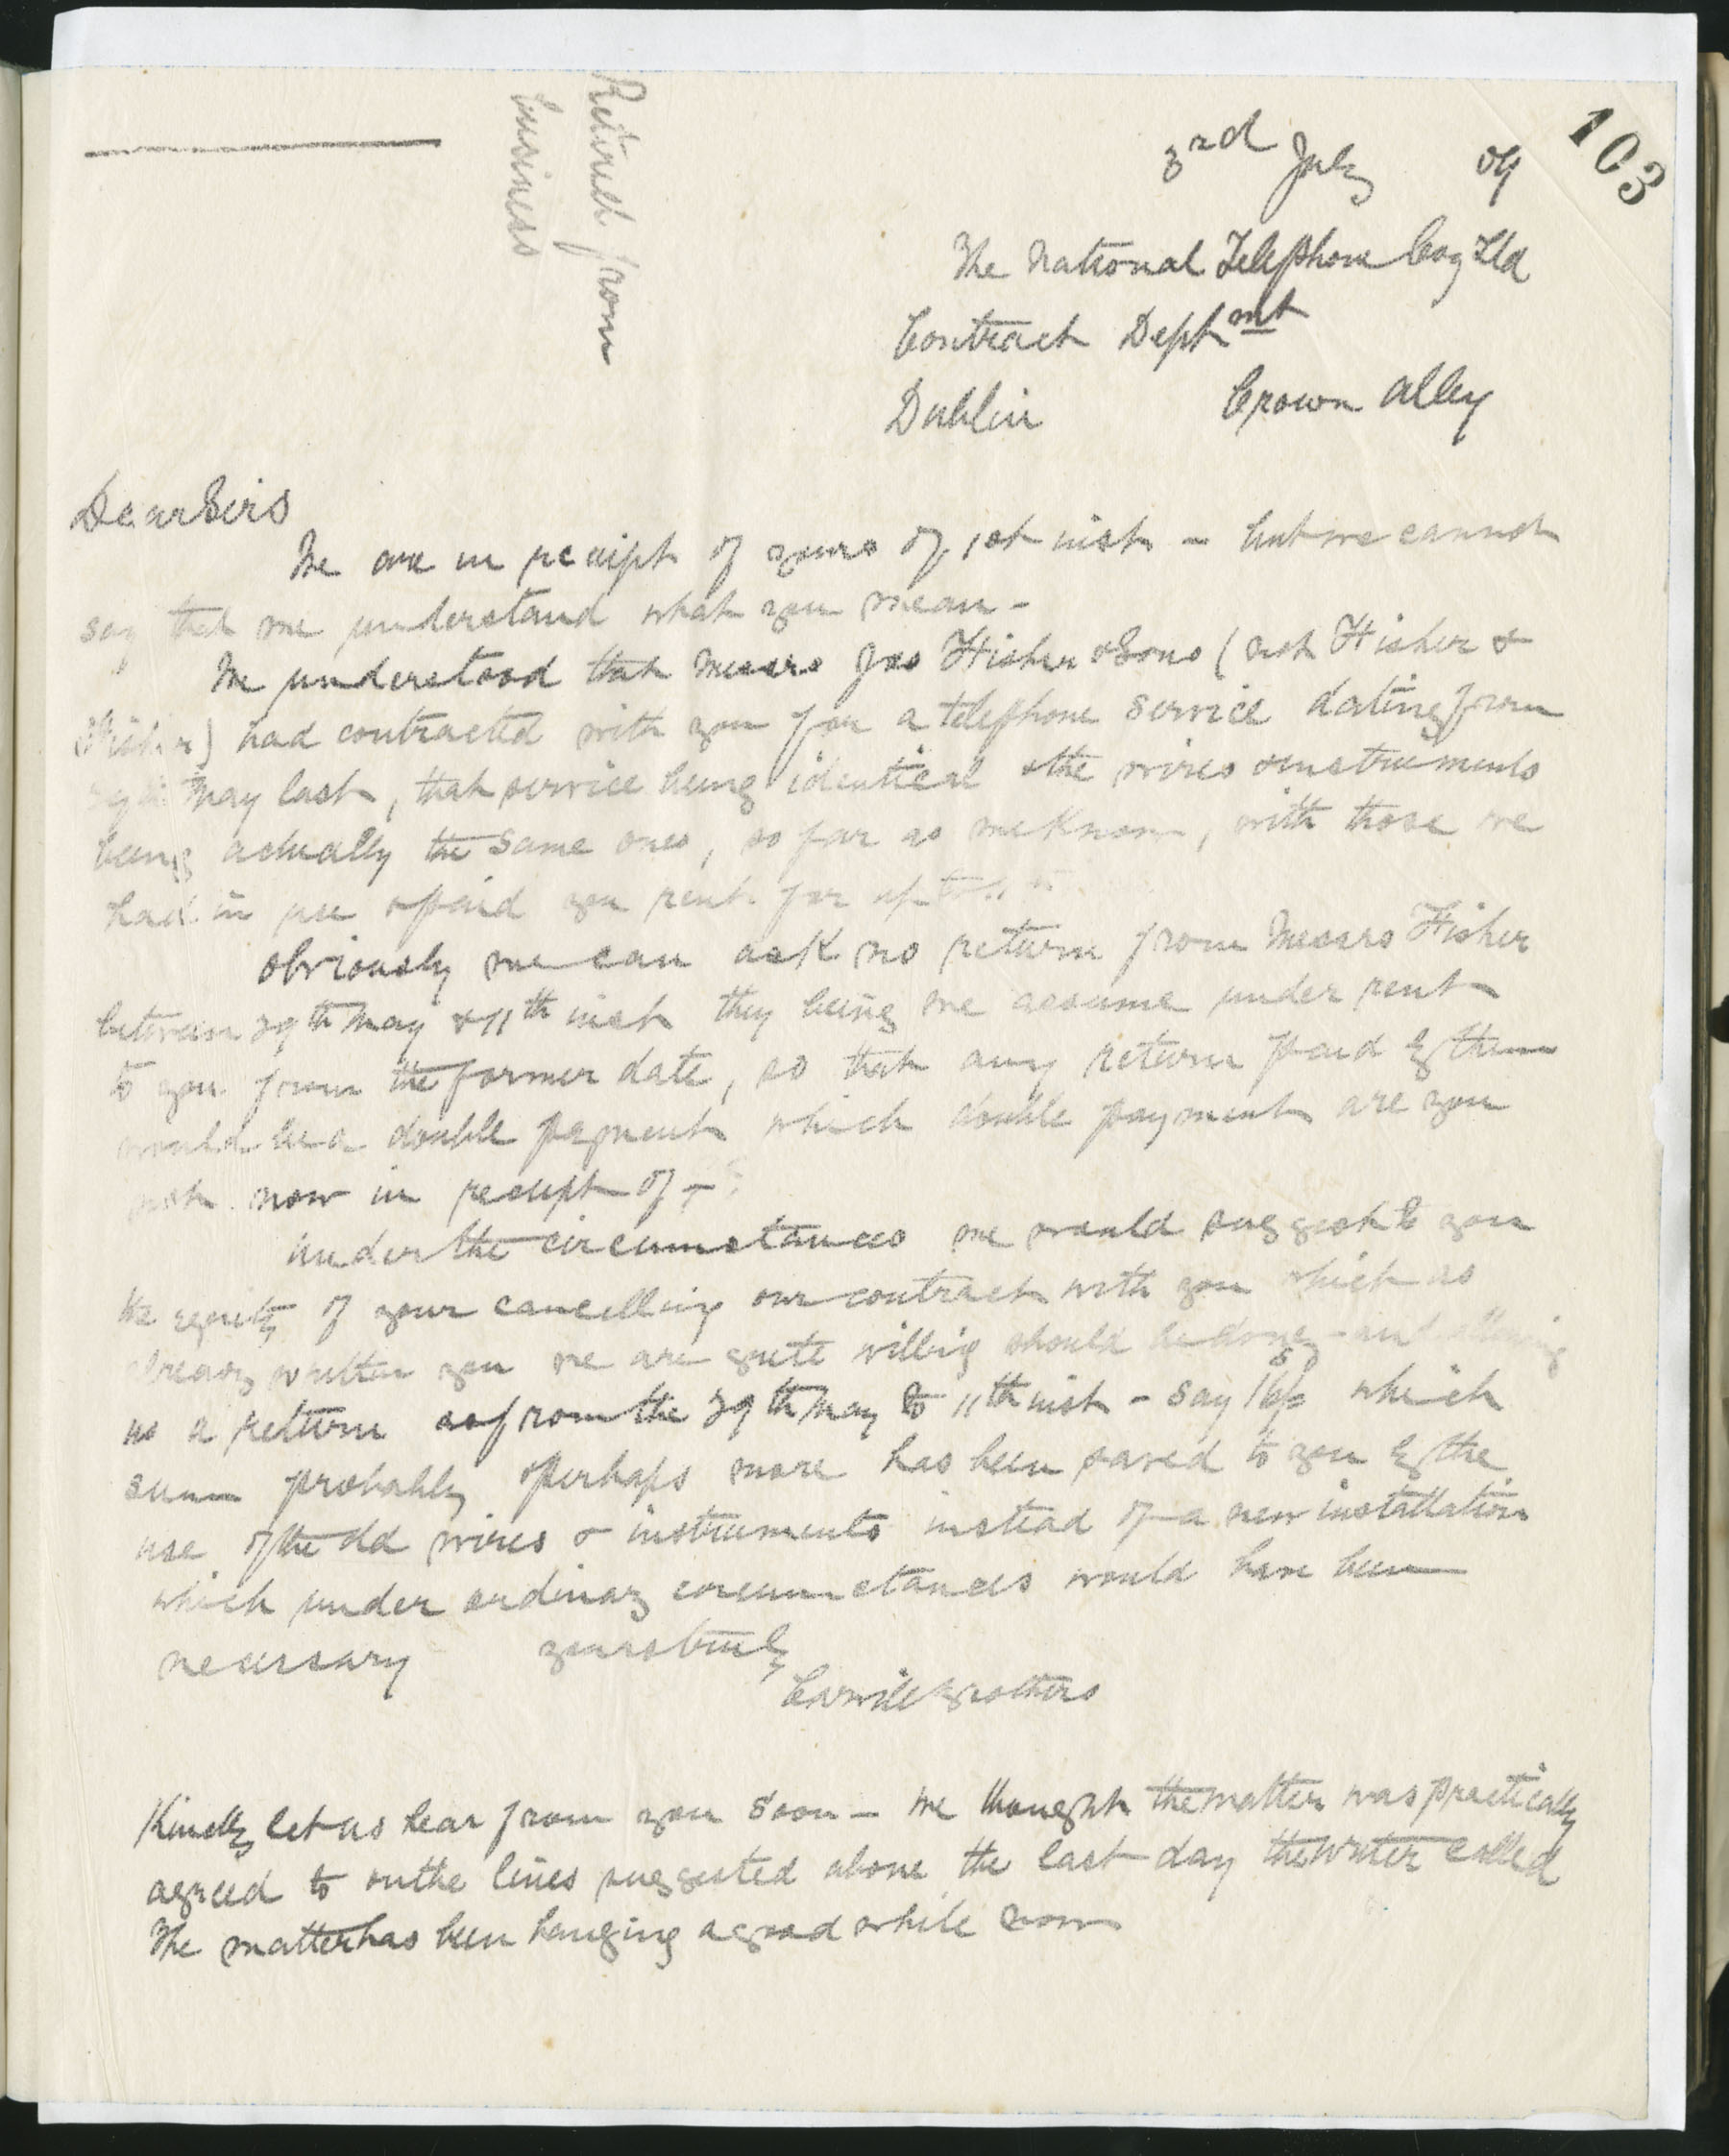 103
Retired from
business
3rd July 09
The National Telephone Coy Ltd
Contract Deptmt
Dublin Crown Alley
Dear Sirs
We are in receipt of yours of 1st inst - but we cannot
say that we understand what you mean -
We understood that Messrs Jas Fisher & Sons (not Fisher &
Fisher) had contracted with you for a telephone service dating from
May last, that service being identical & the wires & instruments
being actually the same ones, so far as we know, with those we
had in use & paid you rent for up to
Obviously we can ask no return from Messrs Fisher
between 29th May & 11th inst they being we assume under rent
to you from the former date, so that any return paid by them
would be a double payment which double payment are you
not now in receipt of - ?
Under the circumstances we would suggest to you
the equity of your cancelling our contract with you which as
already written you we are quite willing should be done - and allowing
us a return as from the 29th May to 11th inst - say which
sum probably & perhaps more has been saved to you by the
use of the old wires & instruments instead of a new installation
which under ordinary circumstances would have been
necessary yours truly
Brothers
Kindly let us hear from you soon - we thought the matter was practically
agreed to on the lines suggested above the last day the writer called
The matter has been hanging a good while now